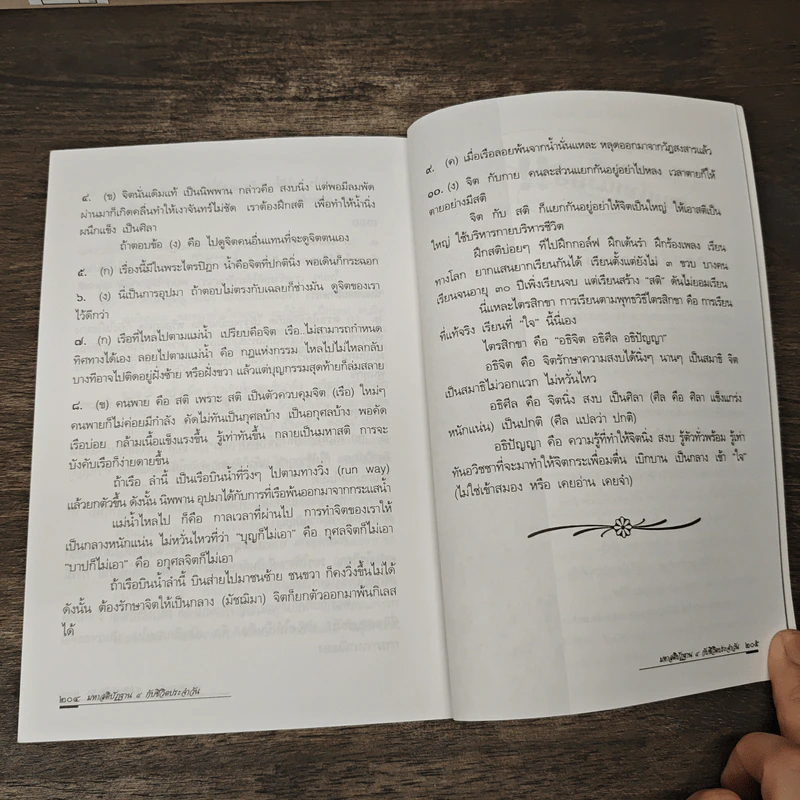 ๔. (ข) จิตนั้นเดิมแท้ เป็นนิพพาน กล่าวคือ สงบนิ่ง แต่พอมีลมพัด
ผ่านมาก็เกิดคลื่นทำให้เงาจันทร์ไม่ชัด เราต้องฝึกสติ เพื่อทำให้น้ำนิ่ง
ผนึกแข็ง เป็นศิลา
ถ้าตอบข้อ (ง) คือ ไปดูจิตคนอื่นแทนที่จะดูจิตตนเอง
๕. (ก) เรื่องนี้มีในพระไตรปิฎก น้ำคือจิตที่ปกตินิ่ง พอเดินก็กระฉอก
๖. (ง) นี่เป็นการอุปมา ถ้าตอบไม่ตรงกับเฉลยก็ช่างมัน ดูจิตของเรา
ไว้ดีกว่า
๗. (ก) เรือที่ไหลไปตามแม่น้ำ เปรียบคือจิต เรือ..ไม่สามารถกำหนด
ทิศทางได้เอง ลอยไปตามแม่น้ำ คือ กฎแห่งกรรม ไหลไปไม่ไหลกลับ
บางทีอาจไปติดอยู่ฝั่งซ้าย หรือฝั่งขวา แล้วแต่บุญกรรมสุดท้ายก็ล่มสลาย
๘. (ข) คนพาย คือ สติ เพราะ สติ เป็นตัวควบคุมจิต (เรือ) ใหม่ๆ
คนพายก็ไม่ค่อยมีกำลัง คัดไม่ทันเป็นกุศลบ้าง เป็นอกุศลบ้าง พอคัด
เรือบ่อย กล้ามเนื้อแข็งแรงขึ้น รู้เท่าทันขึ้น กลายเป็นมหาสติ การจะ
บังคับเรือก็ง่ายดายขึ้น
ถ้าเรือ ลำนี้ เป็นเรือบินน้ำที่วิ่งๆ ไปตามทางวิ่ง (run way)
แล้วยกตัวขึ้น ดังนั้น นิพพาน อุปมาได้กับการที่เรือพ้นออกมาจากกระแสน้ำ
แม่น้ำไหลไป ก็คือ กาลเวลาที่ผ่านไป การทำจิตของเราให้
เป็นกลางหนักแน่น ไม่หวั่นไหวที่ว่า “บุญก็ไม่เอา” คือ กุศลจิตก็ไม่เอา
“บาปก็ไม่เอา” คือ อกุศลจิตก็ไม่เอา
ถ้าเรือบินน้ำลำนี้ บินส่ายไปมาชนซ้าย ชนขวา ก็คงวิ่งขึ้นไม่ได้
ดังนั้น ต้องรักษาจิตให้เป็นกลาง (มัชฌิมา) จิตก็ยกตัวออกมาพ้นกิเลส
ได้
๒๐๔ มหาสติปัฏฐาน ๔ กับชีวิตประจำวัน
๙. (ค) เมื่อเรือลอยพ้นจากน้ำนั่นแหละ หลุดออกมาจากวัฏสงสารแล้ว
๑๐. (ง) จิต กับกาย คนละส่วนแยกกันอยู่อย่าไปหลง เวลาตายก็ให้
ตายอย่างมีสติ
จิต กับ สติ ก็แยกกันอยู่อย่าให้จิตเป็นใหญ่ ให้เอาสติเป็น
ใหญ่ ใช้บริหารกายบริหารชีวิต
ฝึกสติบ่อยๆ ทีไปฝึกกอล์ฟ ฝึกเต้นรำ ฝึกร้องเพลง เรียน
ทางโลก ยากแสนยากเรียนกันได้ เรียนตั้งแต่ยังไม่ ๓ ขวบ บางคน
เรียนจนอายุ ๓๐ ปีเพิ่งเรียนจบ แต่เรียนสร้าง “สติ” ดันไม่ยอมเรียน
นี่แหละไตรสิกขา การเรียนตามพุทธวิธีไตรสิกขา คือ การเรียน
ที่แท้จริง เรียนที่ “ใจ” นี้นี่เอง
ไตรสิกขา คือ “อธิจิต อธิศีล อธิปัญญา”
อธิจิต คือ จิตรักษาความสงบได้นิ่งๆ นานๆ เป็นสมาธิ จิต
เป็นสมาธิไม่วอกแวก ไม่หวั่นไหว
อธิศีล คือ จิตนิ่ง สงบ เป็นศิลา (ศีล คือ ศิลา แข็งแกร่ง
หนักแน่น) เป็นปกติ (ศีล แปลว่า ปกติ)
อธิปัญญา คือ ความรู้ที่ทำให้จิตนิ่ง สงบ รู้ตัวทั่วพร้อม รู้เท่า
ทันอวิชชาที่จะมาทำให้จิตกระเพื่อมตื่น เบิกบาน เป็นกลาง เข้า “ใจ”
(ไม่ใช่เข้าสมอง หรือ เคยอ่าน เคยจำ)
มหาสติปัฏฐาน ๔ กับชีวิตประจำวัน ๒๐๕